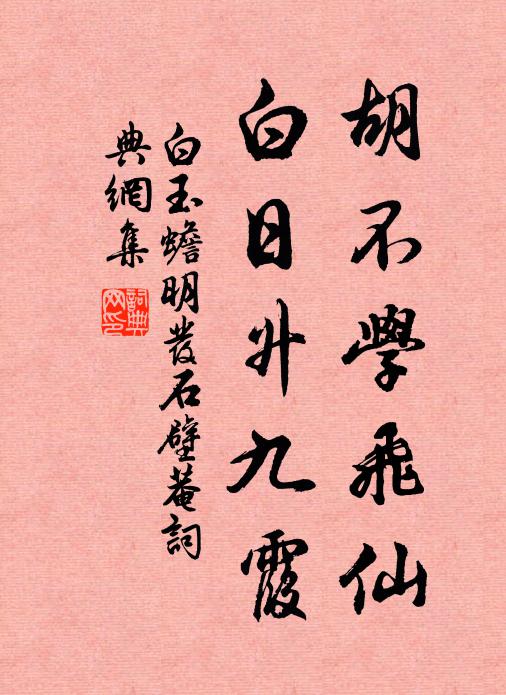 胡不學飛仙
白日升九霞
白玉蟾明發石壁菴詞
典網集
詞典
网印